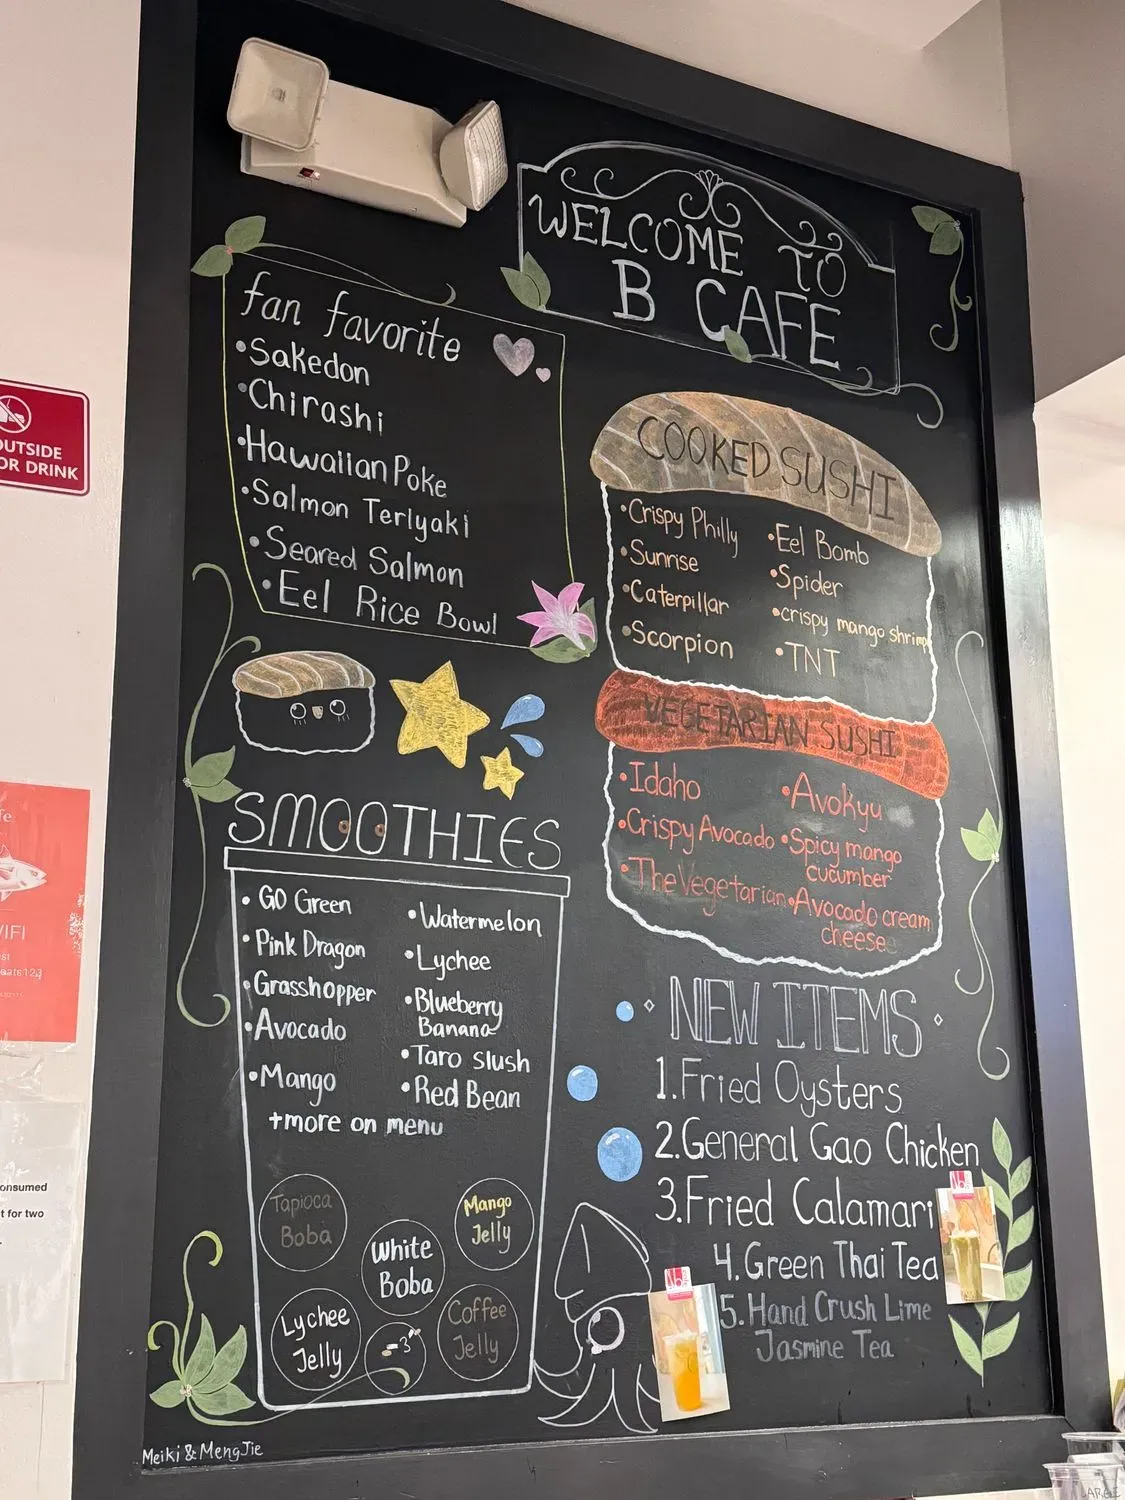 WELCOME TO
B CAFE
fan favorite
•Sakedon
•Chirashi
•Hawaiian Poke
•Salmon Teriyaki
•Seared Salmon
•Eel Rice Bowl
COOKED SUSHI
•Crispy Philly
•Sunrise
•Caterpillar
•Scorpion
•Eel Bomb
•Spider
•crispy mango shrimp
•TNT
VEGETARIAN SUSHI
•Idaho
•Crispy Avocado
•The Vegetarian
•Avokyu
•Spicy mango
cucumber
•Avocado cream
cheese
SMOOTHIES
•GO Green
•Pink Dragon
•Grasshopper
•Avocado
•Mango
•Watermelon
•Lychee
•Blueberry
Banana
•Taro slush
•Red Bean
+more on menu
Tapioca
Boba
White
Boba
Mango
Jelly
Lychee
Jelly
Coffee
Jelly
NEW ITEMS
1.Fried Oysters
2.General Gao Chicken
3.Fried Calamari
4.Green Thai Tea
5.Hand Crush Lime
Jasmine Tea
Meiki & MengJie
OUTSIDE
OR DRINK
onsumed
t for two